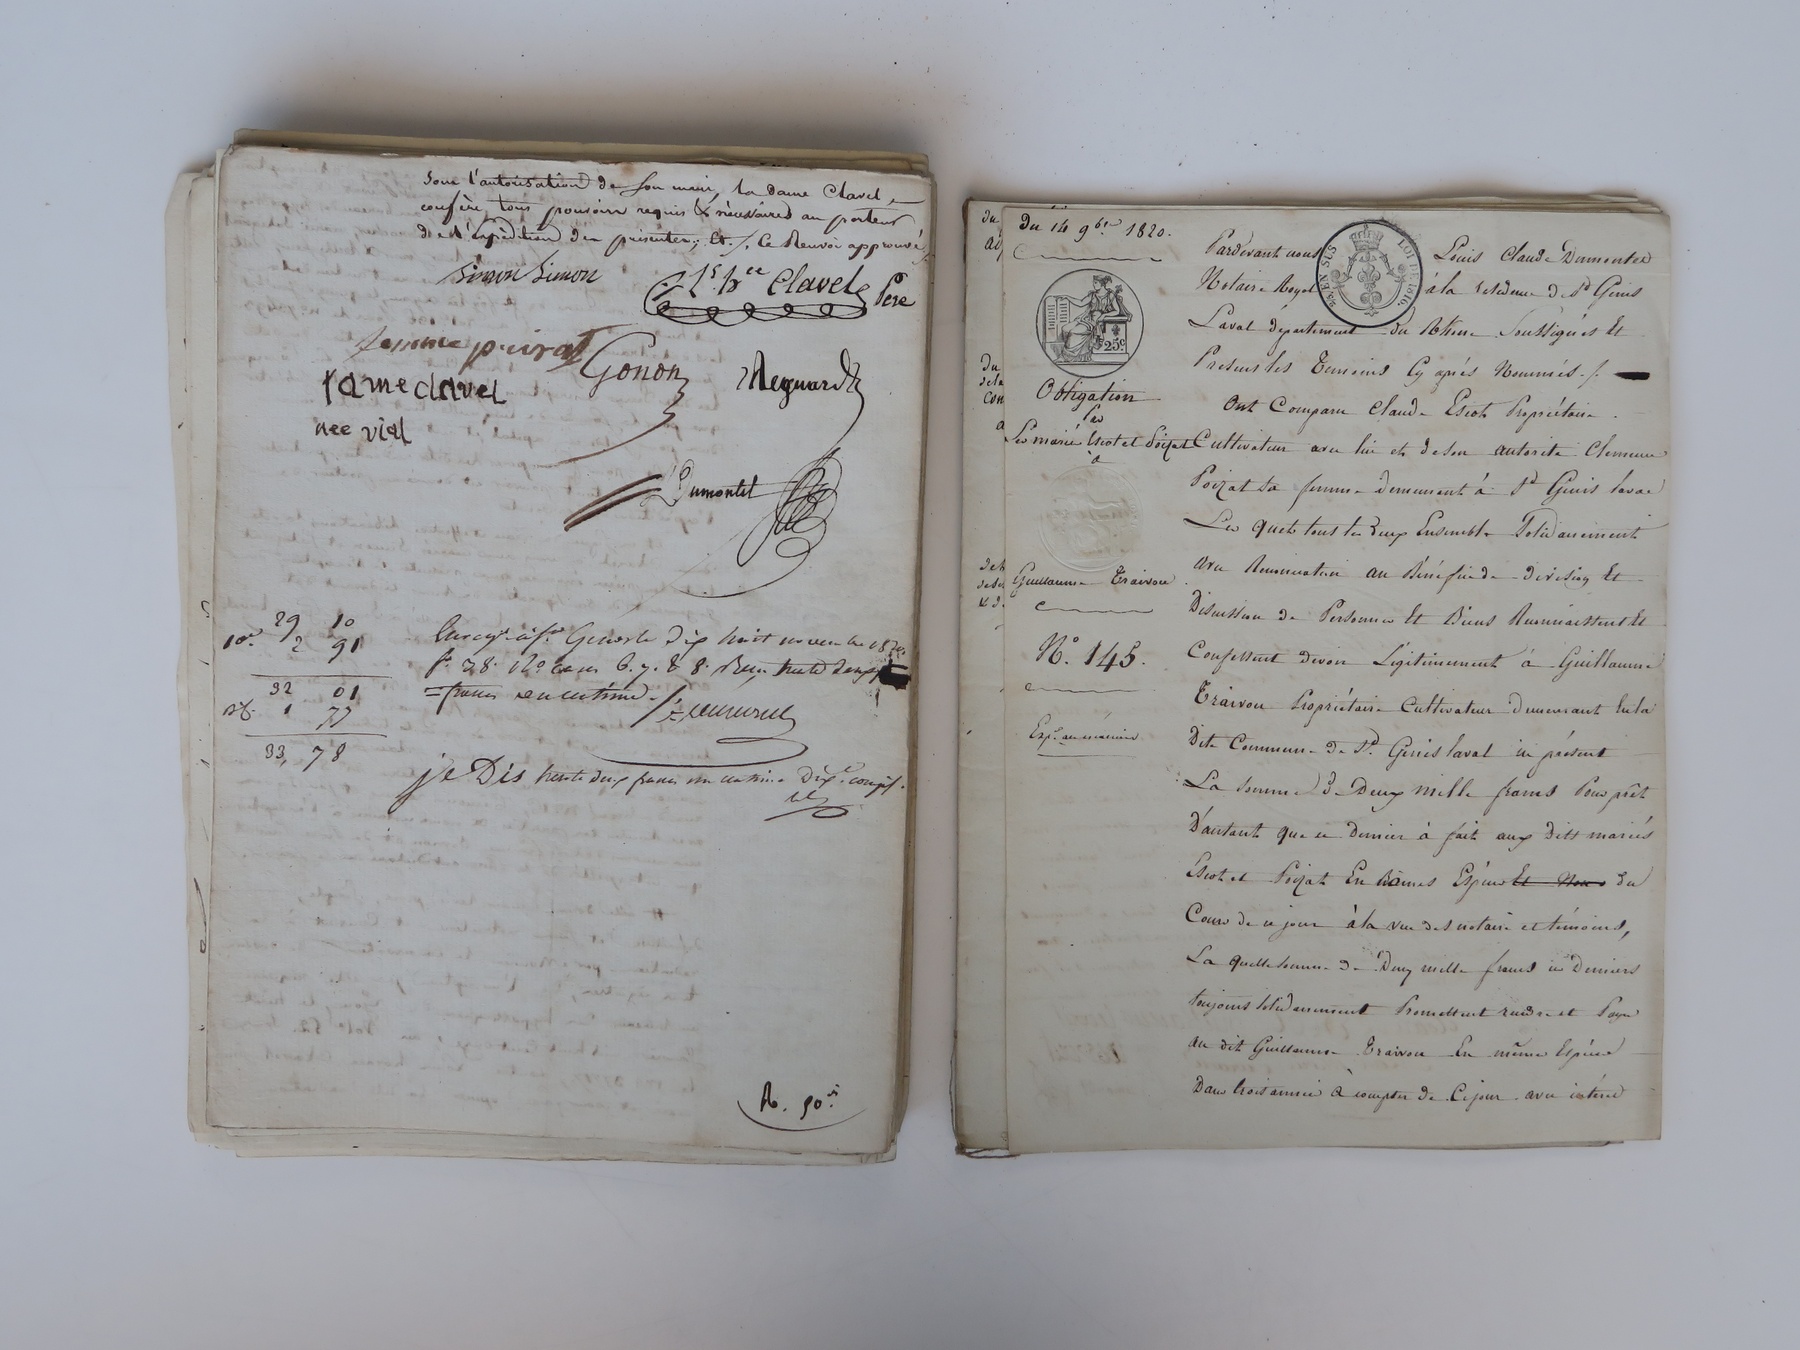 sous l'autorisation de son mari, la dame Clavel
confère tous pouvoirs requis & nécessaires au porteur
de l'expédition des présentes, &c. /. Ce Renvoi approuvé
Simon Simon
Clavel Père
femme privat
Gonon
Reynard
fame clavel
nee vial
Dumontet
29 10
10e 2 91
32 01
1 77
33, 78
Enregé à St Genis le dix huit novembre 1820
fo 78 Vo cases 6. 7. & 8. Reçu trente deux
francs un centime.
je Dis trente deux francs un centime Dixe compris.
R. 50
Du 14 9bre 1820.
EN SUS
LOI DE 1816.
25c
Obligation
Par
Les mariés Escot et Poizat
à
Guillaume Traivou
No. 145.
Pardevant nous Louis Claude Dumontet
Notaire Royal à la résidence de St Genis
Laval département du Rhône Soussignés Et
Présents les Témoins Cy après Nommés. /.
Ont Comparu Claude Escot Propriétaire
Cultivateur avec lui et de son autorité Clemence
Poizat Sa femme demeurant à St Genis laval
Les quels tous les deux Ensemble Solidairement
avec Renonciation au Bénéfice de division Et
Discussion de Personnes Et Biens Reconnaissent Et
Confessent devoir Légitimement à Guillaume
Traivou Propriétaire Cultivateur demeurant en la
Dite Commune de St. Genis laval ici présent
La Somme de Deux mille francs Pour prêt
D'autant que ce Dernier à fait aux dits mariés
Escot et Poizat En Bonnes Espèces Et du
Cours de ce jour à la vue des notaire et témoins,
La quelle somme de Deux mille francs ces Derniers
toujours solidairement Promettent rendre et Payer
au dit Guillaume Traivou En même Espèce
Dans trois années à compter de Ce jour avec intérêt